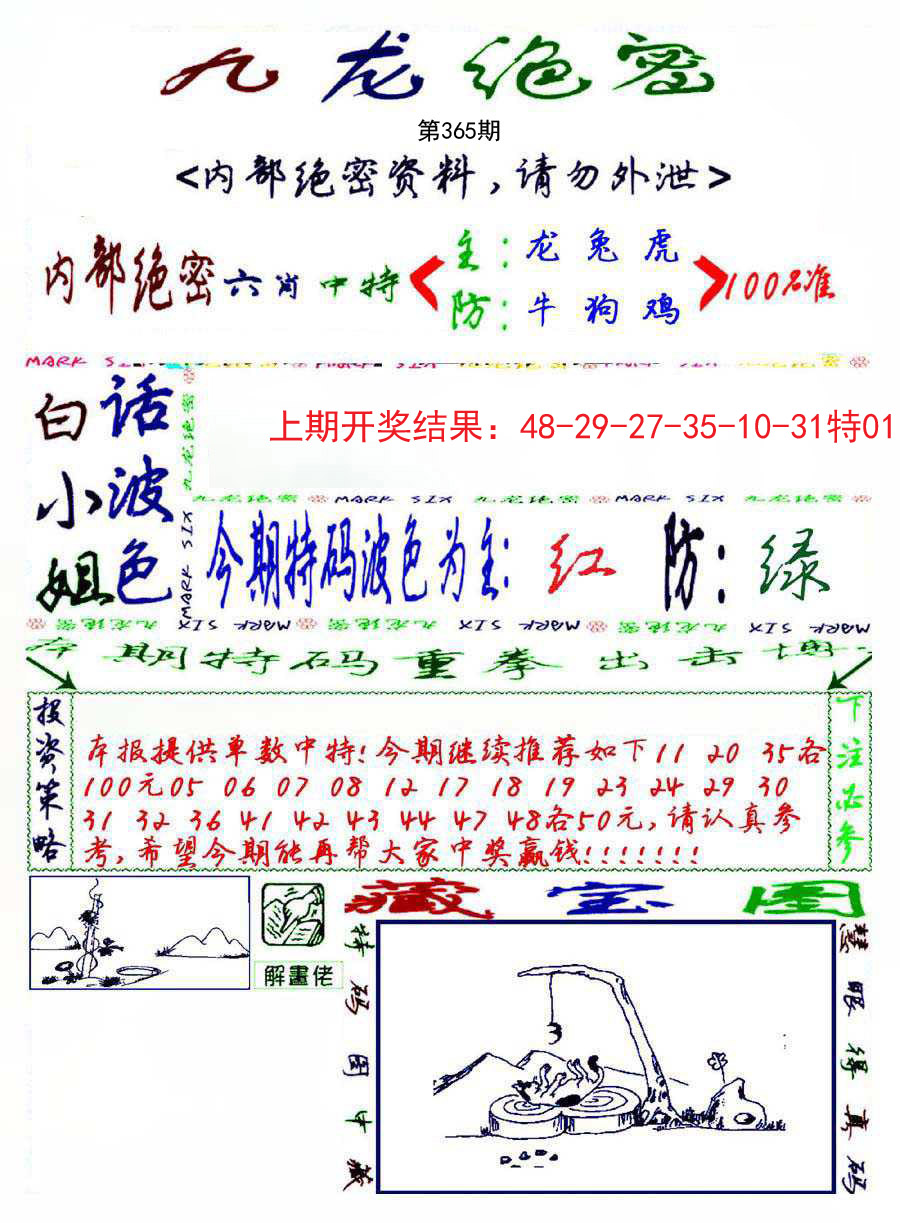 九龙绝密
第365期
<内部绝密资料,请勿外泄>
内部绝密六肖中特
主:龙兔虎
防:牛狗鸡
100%准
MARK SIX
白话小波姐色
上期开奖结果：48-29-27-35-10-31特01
九龙绝密 MARK SIX 九龙绝密 MARK SIX 九龙绝密
今期特码波色为主:红 防:绿
九龙绝密 MARK SIX 九龙绝密 MARK SIX 九龙绝密 MARK SIX
本期特码重拳出击博
投资策略
本报提供单数中特!今期继续推荐如下11 20 35各
100元05 06 07 08 12 17 18 19 23 24 29 30
31 32 36 41 42 43 44 47 48各50元,请认真参
考,希望今期能再帮大家中奖赢钱!!!!!!!
下注必参
解畫佬
藏宝图
特码图中藏
慧眼得真码